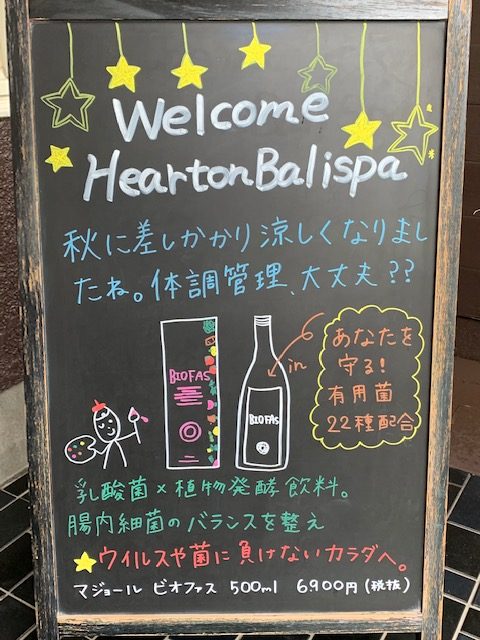 Welcome
HeartonBalispa
秋に差しかかり涼しくなりまし
たね。体調管理、大丈夫??
BIOFAS
BIOFAS
in
あなたを
守る!
有用菌
22種配合
乳酸菌×植物発酵飲料。
腸内細菌のバランスを整え
ウイルスや菌に負けないカラダへ。
マジョール ビオファス 500ml 6.900円(税抜)